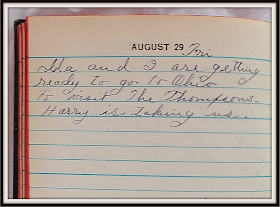 AUGUST 29 Fri
Ida and I are getting
ready to go to Ohio
to visit The Thompsons.
Harry is taking us.